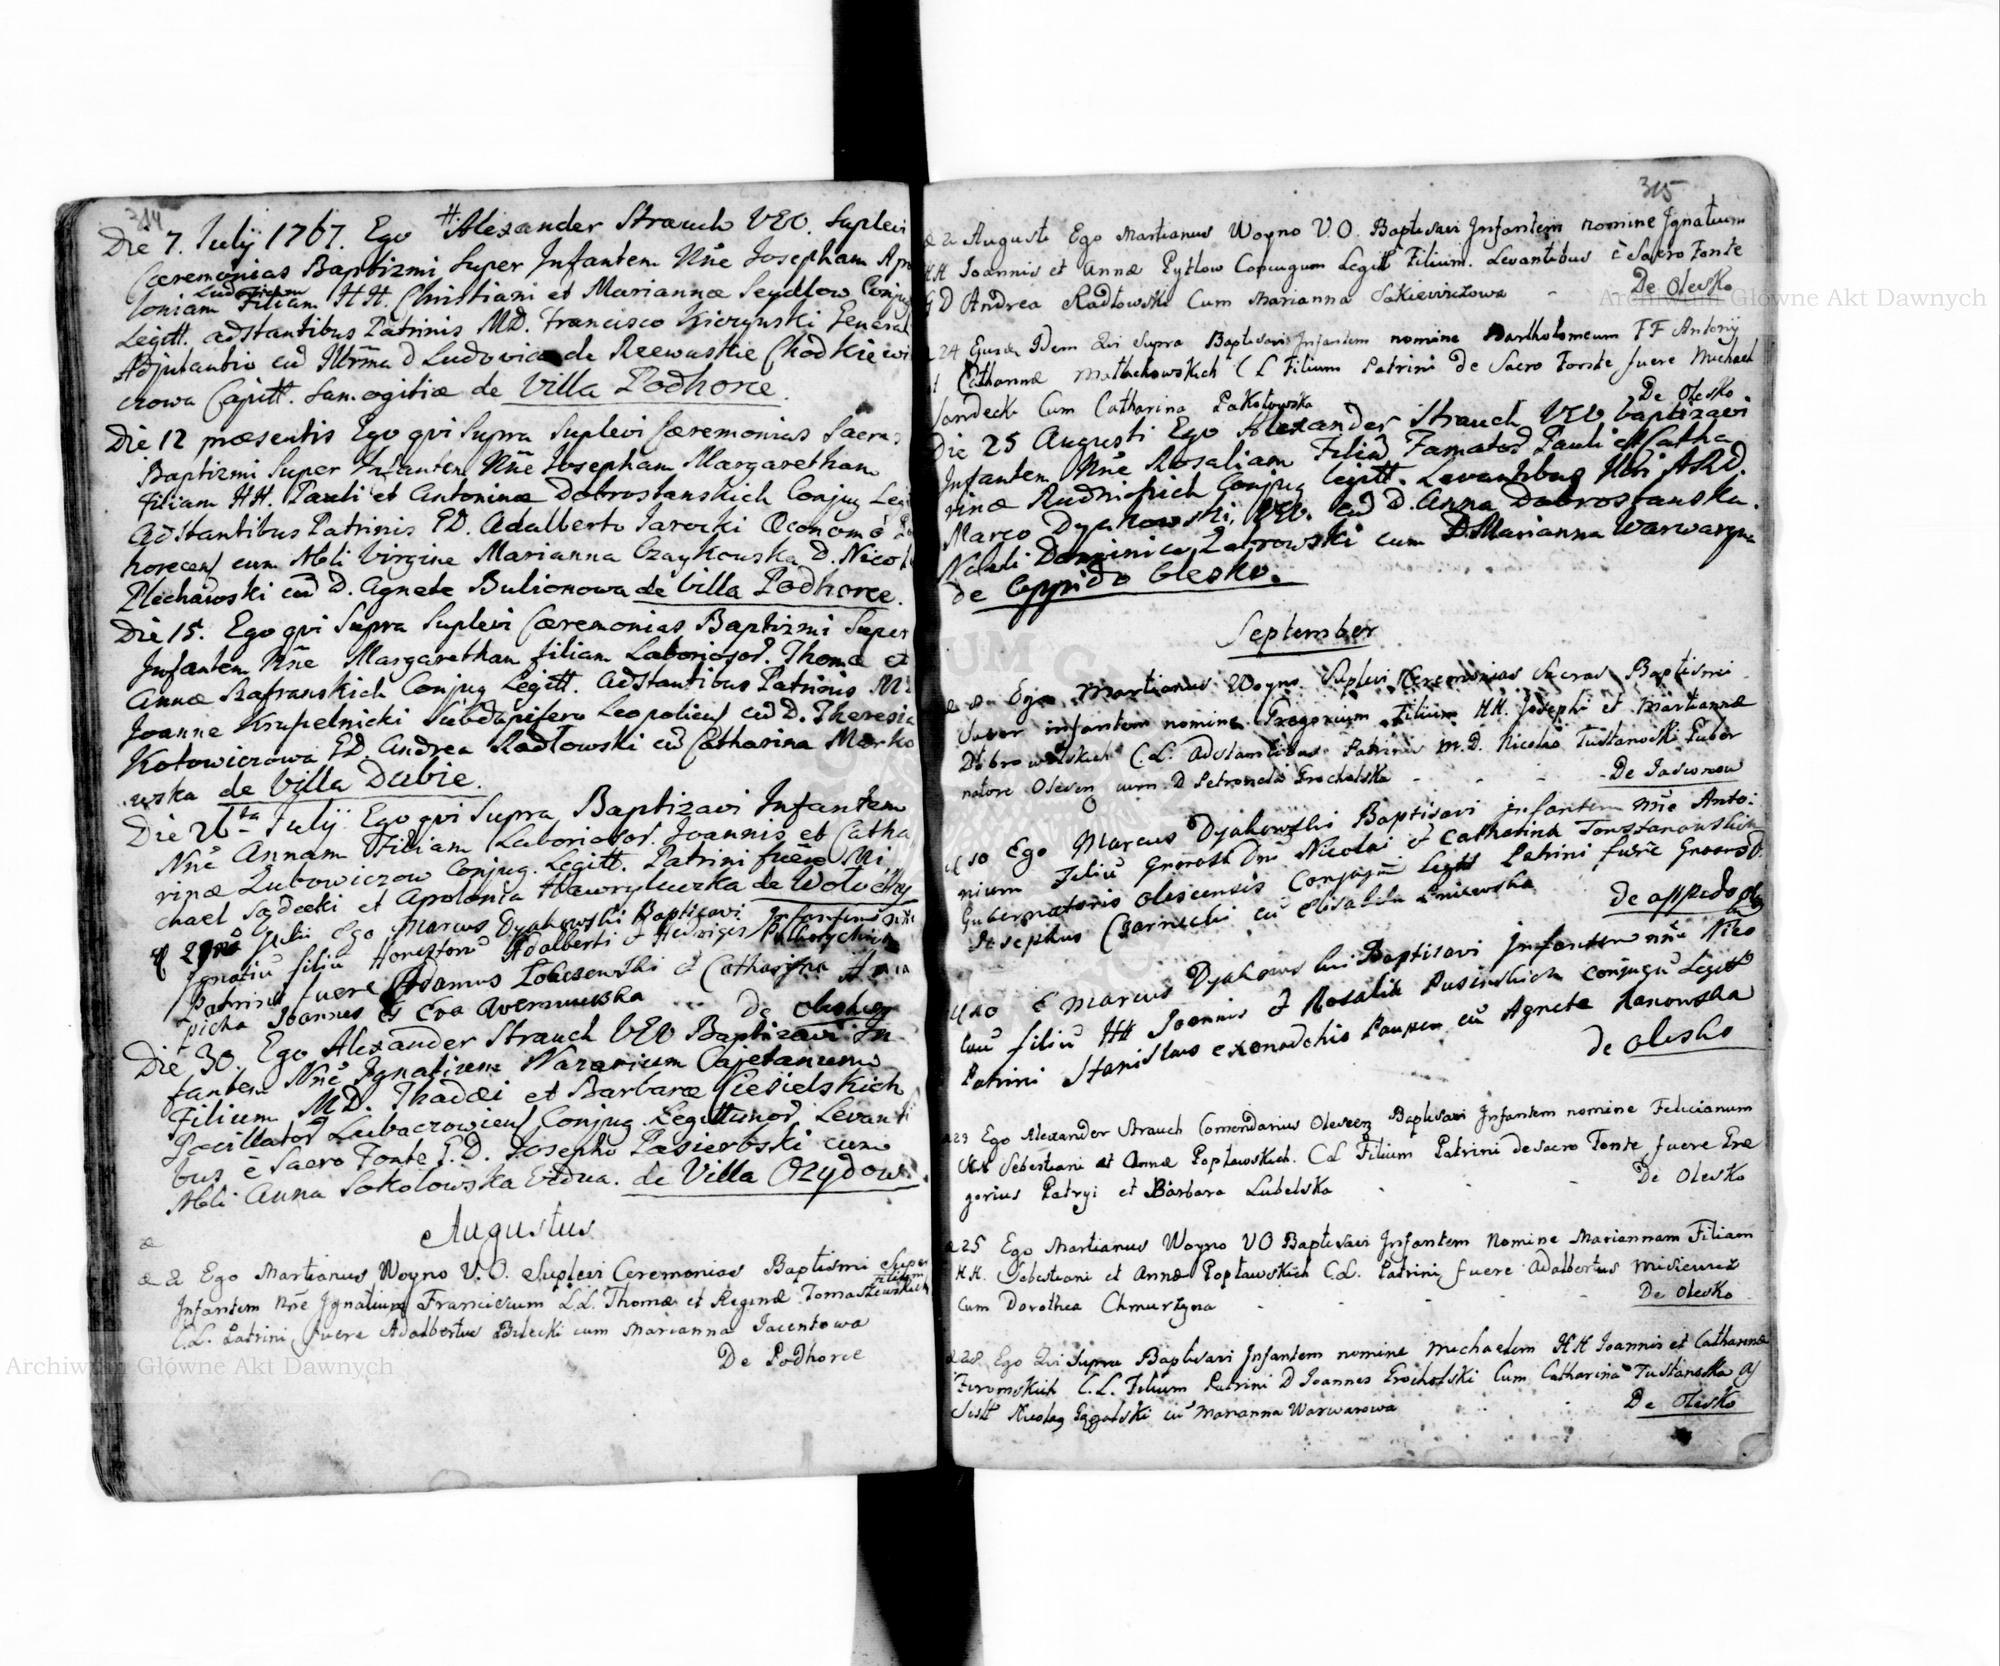 314
Die 7. Julÿ 1767. Ego Alexander Strauch VEO. Suplevi
Cæremonias Baptizmi Super Infantem Nñe Josepham Apo
Ludovicam
loniam Filiam HH. Christiani et Mariannæ Seydlow Conjug
Legitt. adstantibus Patrinis MD. Francisco Kiczynski General
Adjutantio cũ Illrm̃a D Ludovica de Rzewuskie Chodkiewi
czowa Capitt. Samogitiæ de Villa Podhorce.
Die 12 præsentis Ego qvi Supra Suplevi Cæremonias Sacras
Baptizmi Super Infantem Nñe Josepham Margaretham
Filiam HH. Pauli et Antoninæ Dobrostanskich Conjug Legi
Adstantibus Patrinis PD. Adalberto Jarocki Œconomo Pod
horecens cum Mli Virgine Marianna Czaykowska D. Nicol
Plechawski cũ D. Agnete Bulionowa de Villa Podhorce.
Die 15. Ego qvi Supra Suplevi Cæremonias Baptizmi Super
Infantem Nñe Margaretham filiam Laboriosor. Thomæ et
Annæ Szafranskich Conjug Legitt. adstantibus Patrinis M
Joanne Krupelnicki Subdapifero Leopoliens cũ D. Theresia
Kotowiczowa PD. Andrea Radłowski cũ Catharina Morko
wska de Villa Dubie.
Die 26ta Julÿ Ego qvi Supra Baptizavi Infantem
Nñe Annam Filiam Laboriosor. Joannis et Catha
rinæ Lubowiczow Conjug. Legitt. Patrini fuere Mi
chael Sądecki et Apolonia Hawryluczka de Wołuchy
29 Julii Ego Marcus Dyakowski Baptisavi Infantem
Ignatiũ filiũ Honestorũ Adalberti et Hedviges
Patrini fuere Adamus et Catharina
picha Joannes et Eva de Olesko
Die 30. Ego Alexander Strauch VEO Baptizavi In
fantem Nñe Ignatium Nazarium Cajetanum
Filium MD. Thadæi et Barbaræ Ciesielskich
Pocillator Lubaczowiens Conjug. Legittimor Levanti
bus è Sacro Fonte G.D. Josepho Pasierbski cum
Mli Anna Sokołowska Vidua. de Villa Ożydow.
Augustus
æ 2 Ego Martianus Woyno V.O. Suplevi Ceremonias Baptismi Super
Filium
Infantem Nñe Ignatium Franciscum L.L. Thomæ et Reginæ Tomaszewskich
C.L. Patrini fuere Adalbertus Bilecki cum Marianna Jacentowa
De Podhorce
315
Augusti Ego Martianus Woyno V.O. Baptisavi Infantem nomine Ignatium
HH Joannis et Annæ Pytlow Conjugum Legitt Filium. Levantibus è Sacro Fonte
G D Andrea Radłowski Cum Marianna Sakiewiczowa - De Olesko
24 Ejusdem Idem Qvi Supra Baptisavi Infantem nomine Bartholomeum FF Antonÿ
et Catharinæ Matlachowskich C L Filium Patrini de Sacro Fonte fuere Michael
Sandecki Cum Catharina Pakotowska De Olesko
Die 25 Augusti Ego Alexander Strauch VEO baptizavi
Infantem Nñe Rosaliam Filiã Famator Pauli et Catha
rinæ Rudnickich Conjug legitt. Levantibus
Marco Dyakowski, VEO. cũ D. Anna Dobrostanska.
Nobili Dominico Zabrowski cum D. Marianna Warwaryna
de Oppido Olesko.
September
8 Ego Martianus Woyno Suplevi Ceremonias Sacras Baptismi
Super infantem nomine Gregorium Filium HH. Josephi et Mariannæ
Dobrowolskich C.L. Adstantibus Patrinis M.D. Nicolao Tustanoski Guber
natore Olescen cum D Petronela Grocholska - - - De Jasionow
10 Ego Marcus Dyakowski Baptisavi infantem nñe Anto:
nium Filiũ Generosi Dni Nicolai et Catherina Tonstanowskich
Gubernatoris Olescensis Conjugũ Legitt Patrini fuere Generos D.
Josephus Czarnecki cũ Elisabeta de oppido Ole
Marcus Dyakowski Baptisavi Infantem nñe Nico
laũ filiũ HH Joannis et Rosalia Pusinskich Conjugũ Legitt
Patrini Stanislaus exenodochio Pauper cũ Agnete Kanowska
de Olesko
23 Ego Alexander Strauch Comendarius Olescen Baptisavi Infantem nomine Felicianum
HH Sebestiani et Annæ Popławskich. CL Filium Patrini de Sacro Fonte fuere Gre
gorius Patryi et Barbara Lubelska - - De Olesko
25 Ego Martianus Woyno VO Baptisavi Infantem Nomine Mariannam Filiam
HH. Sebestiani et Annæ Popławskich C.L. Patrini fuere Adalbertus Misiewicz
Cum Dorothea Chmurzyna - - - - De Olesko
28. Ego Qvi Supra Baptisavi Infantem nomine Michaelem HH Joannis et Catharinæ
Zeromskich C.L. Filium Patrini D Joannes Grocholski Cum Catharina Tustanoska
Nicolaus cũ Marianna Warwarowa - - De Olesko
Archiwum Główne Akt Dawnych
Archiwum Główne Akt Dawnych